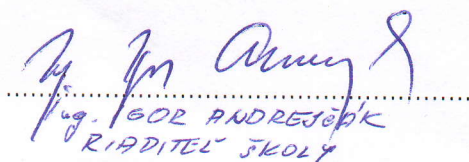 Ing. IGOR ANDREJČÁK
RIADITEĽ ŠKOLY